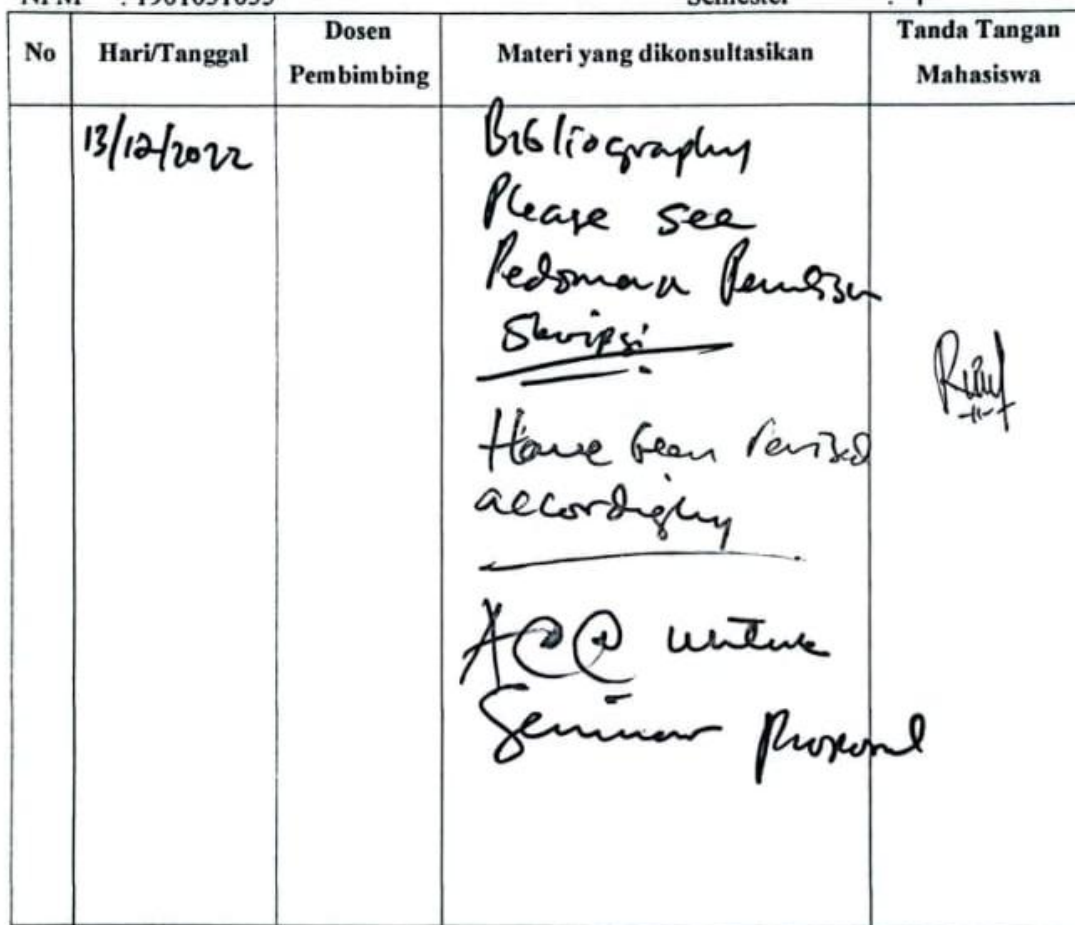 No Hari/Tanggal Dosen Pembimbing Materi yang dikonsultasikan Tanda Tangan Mahasiswa
13/12/2022
Bibliography
Please see
Pedoman Penulisan
Skripsi
Have been revised
accordigly
ACC untuk
Seminar Proposal